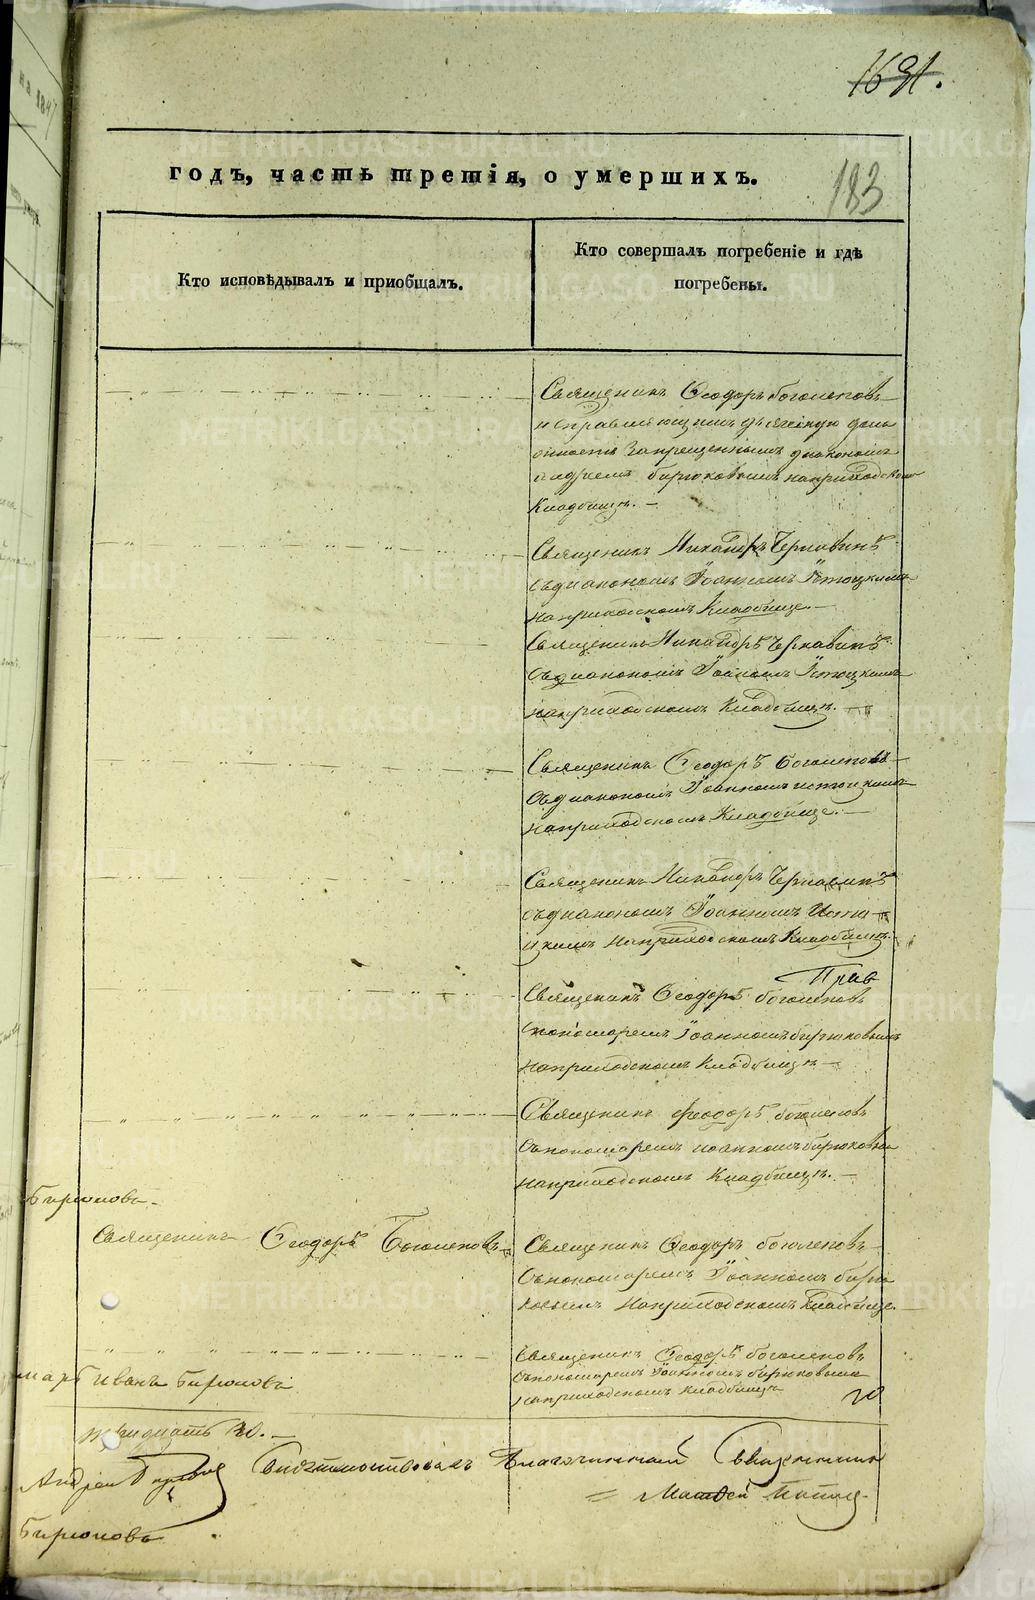 1691.
183
годъ, часть третія, о умершихъ.
Кто исповѣдывалъ и приобщалъ.
Кто совершалъ погребеніе и гдѣ
погребены.
Священикъ Ѳеодоръ Боголеповъ
исправляющимъ дьяческую долж
ность запрещеннымъ диакономъ
Андреемъ Бирюковымъ наприходскомъ
Кладбищѣ. —
Священикъ Никаноръ Чернавинъ
съдиакономъ Іоанномъ
наприходскомъ Кладбище. —
Священикъ Никаноръ Чернавинъ
съдиакономъ Іоаномъ
наприходскомъ Кладбищѣ. —
Священикъ Ѳеодоръ Боголеповъ
съдиакономъ Іоанномъ
наприходскомъ Кладбище. —
Священикъ Никаноръ Чернавинъ
съдиакономъ Іоанномъ
наприходскомъ Кладбищѣ.
Священикъ Ѳеодоръ Боголеповъ
спономаремъ Іоанномъ Бирюковымъ
наприходскомъ Кладбищѣ —
Священикъ Феодоръ Боголеповъ
съпономаремъ Иоанномъ Бирюковым
наприходскомъ Кладбищѣ. —
Бирюковъ.
Священикъ Ѳеодоръ Боголеповъ
Священикъ Ѳеодоръ Боголеповъ
съпономаремъ Іоанномъ Бирю
ковымъ наприходскомъ Кладбище.
Священикъ Ѳеодоръ Боголеповъ
съпономаремъ Іоанномъ Бирюковым
наприходскомъ Кладбищѣ
марь Иванъ Бирюковъ
тридцать 30. —
Андрей
Свидетельствовалъ Благочинный Священникъ
Матвей Попов
Бирюковъ